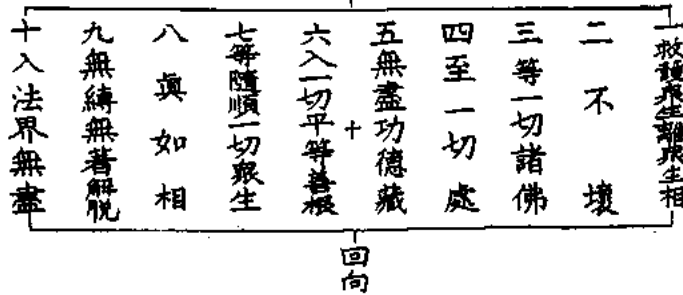 一救護眾生離眾生相
二不壞
三等一切諸佛
四至一切處
五無盡功德藏
十
六入一切平等善根
七等隨順一切眾生
八真如相
九無縛無著解脫
十入法界無盡
回向